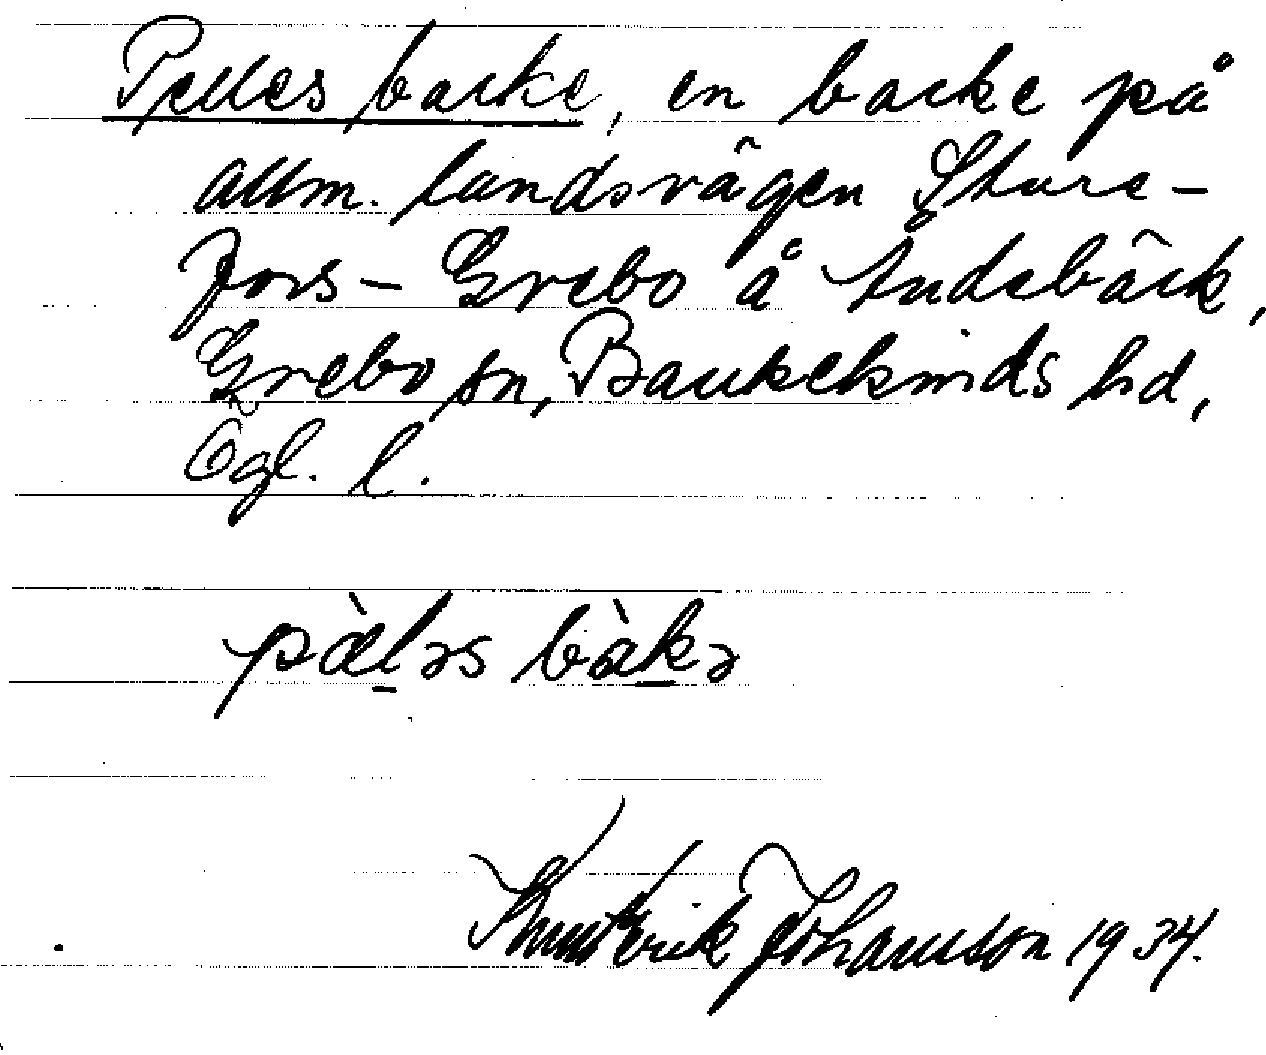 Pelles backe, en backe på
allm. landsvägen Sture-
fors - Grebo å
Grebo sn, Bankekinds hd,
Ögl. l.
pæ̀l̠əs bàk̠ə
Knut Erik Johansson 1934.